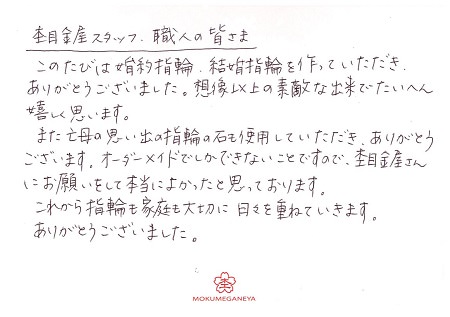 杢目金屋スタッフ、職人の皆さま
このたびは婚約指輪、結婚指輪を作っていただき、
ありがとうございました。想像以上の素敵な出来でたいへん
嬉しく思います。
また亡母の思い出の指輪の石も使用していただき、ありがとう
ございます。オーダーメイドでしかできないことですので、杢目金屋さん
にお願いをして本当によかったと思っております。
これから指輪も家庭も大切に日々を重ねていきます。
ありがとうございました。
杢
MOKUMEGANEYA